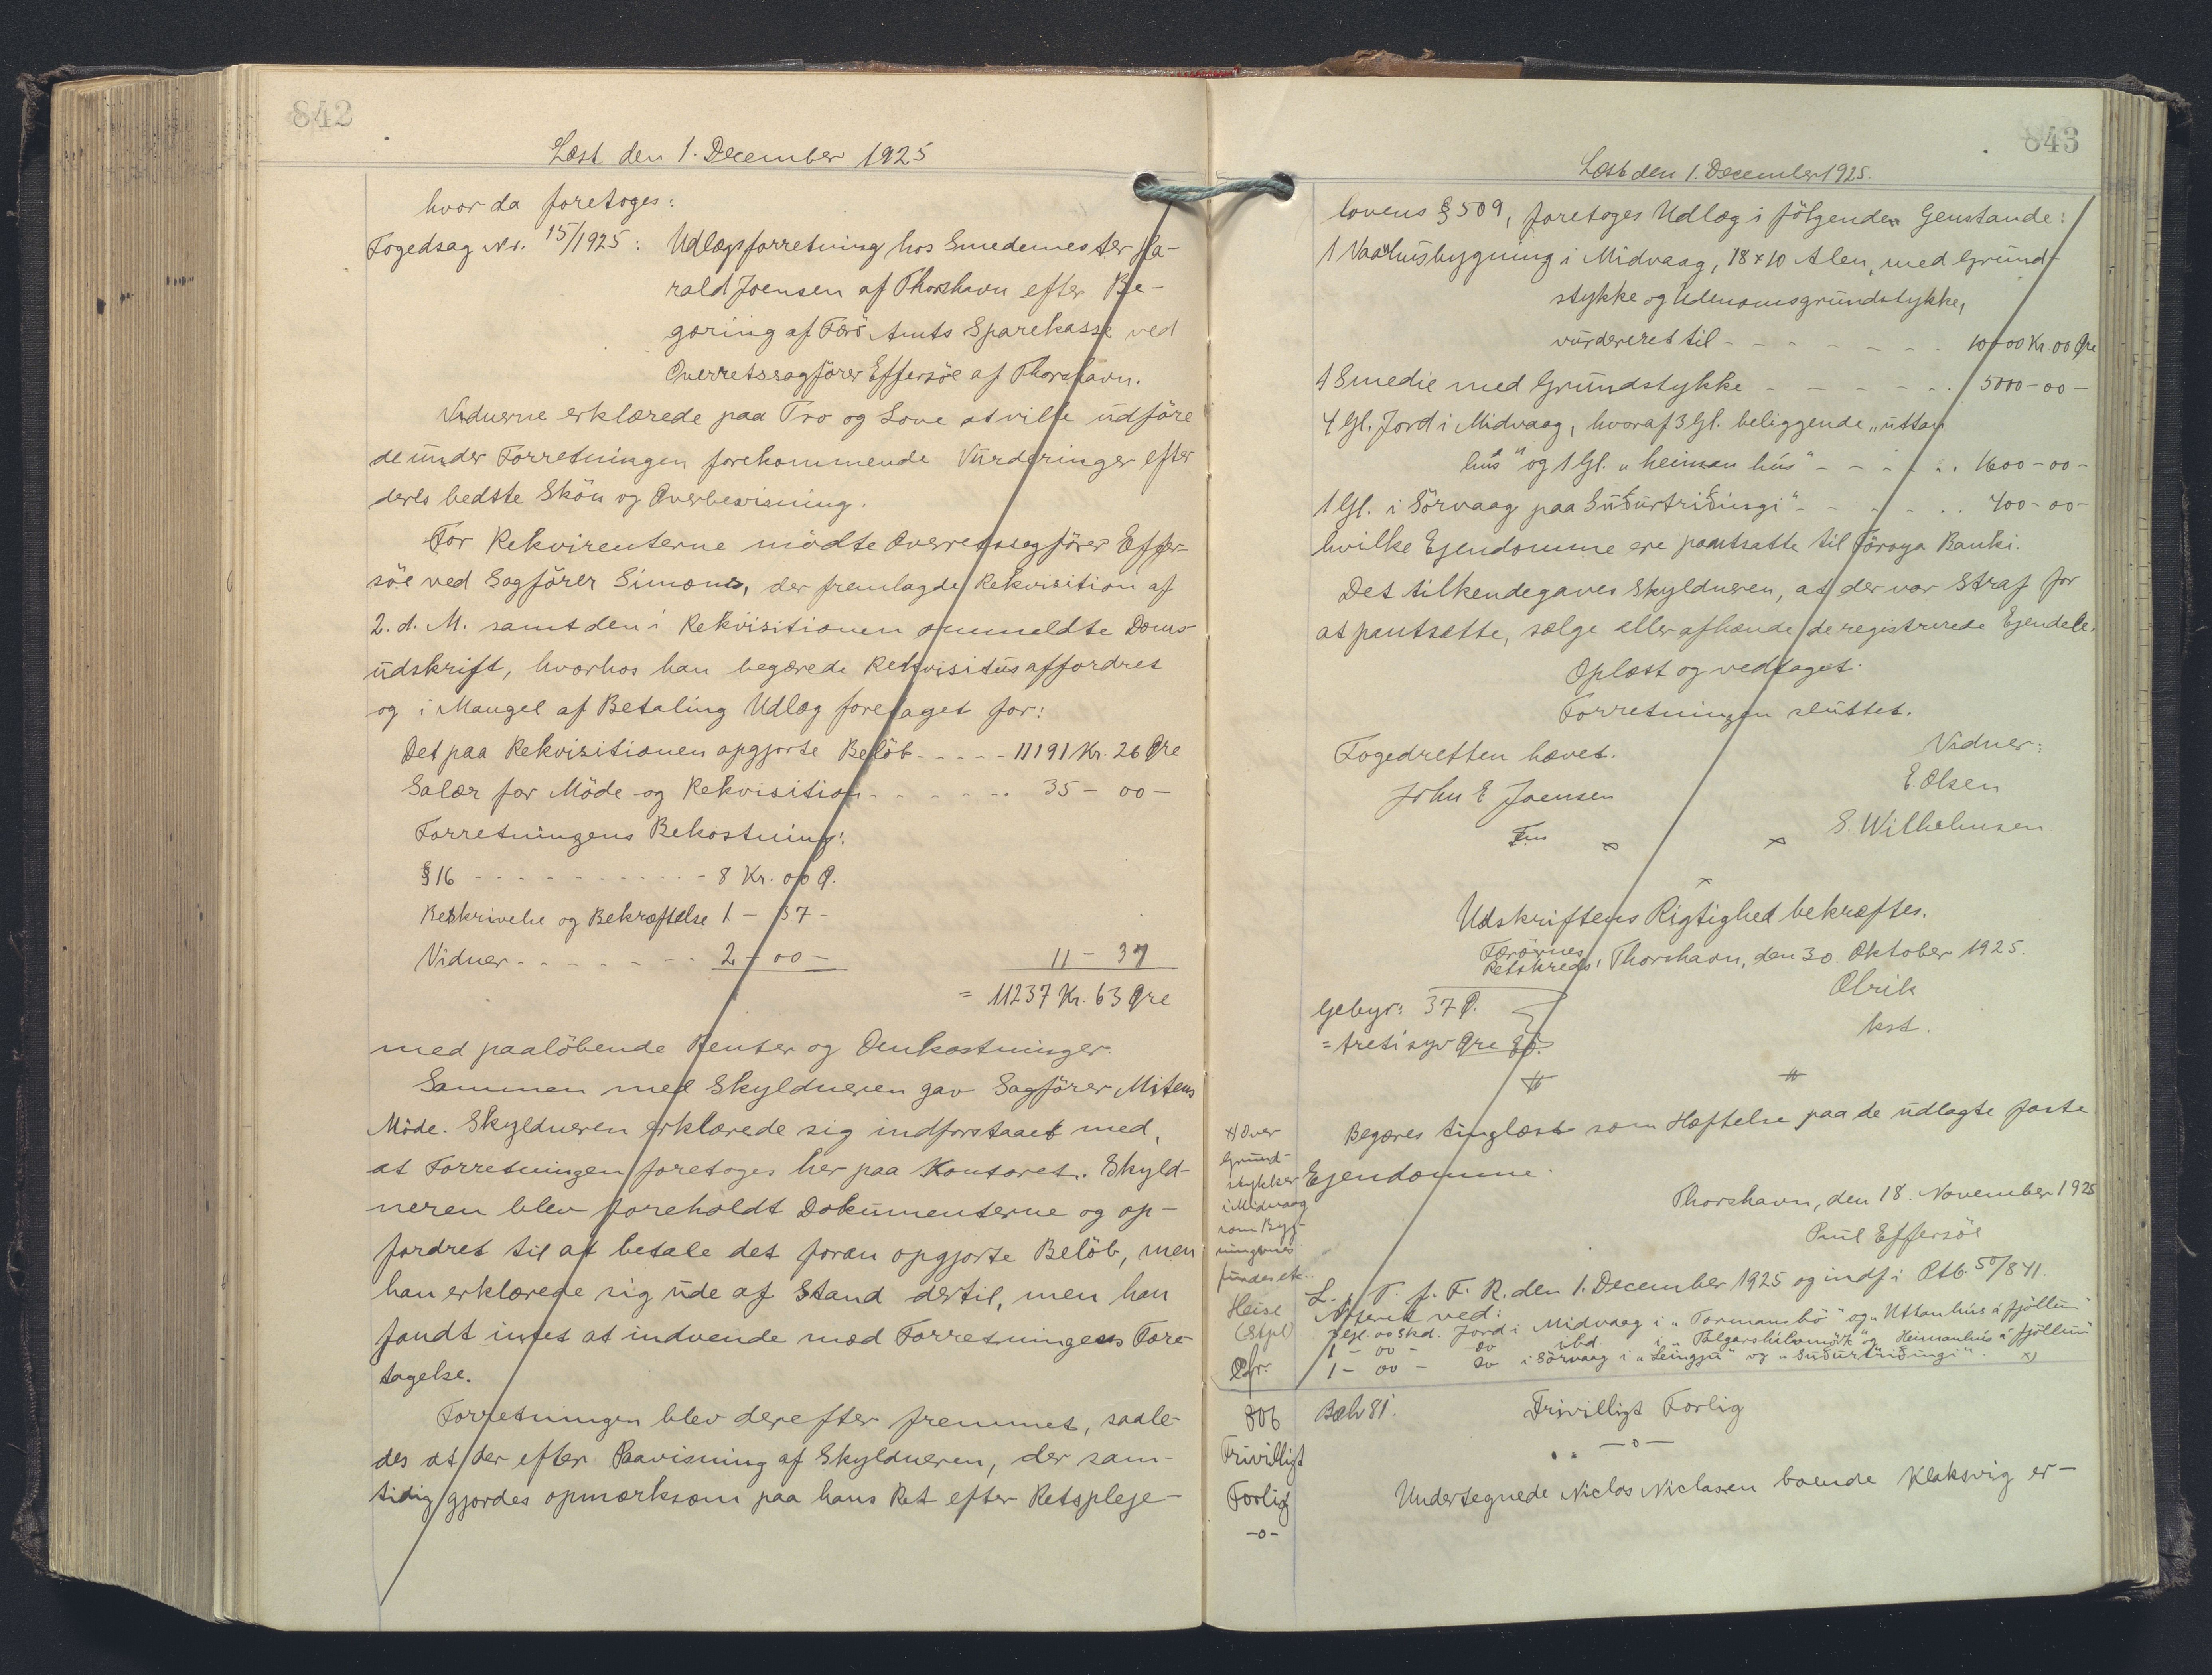 842
Læst den 1. December 1925
hvor da foretoges:
Fogedsag Nr. 15/1925: Udlægsforretning hos Smedemester Ha-
rald Joensen af Thorshavn efter Be-
gæring af Færö Amts Sparekasse ved
Overretssagförer Effersöe af Thorshavn.
Vidnerne erklærede paa Tro og Love at ville udföre
de under Forretningen forekommende Vurderinger efter
deres bedste Skön og Overbevisning.
For Rekvirenterne mödte Overretssagförer Effer-
söe ved Sagförer Simoens, der fremlagde Rekvisition af
2. d. M. samt den i Rekvisitionen ommeldte Doms-
udskrift, hvorhos han begærede Rekvisitus affordret
og i Mangel af Betaling Udlæg foretaget for:
Det paa Rekvisitionen opgjorte Belöb - - - - - 11191 Kr. 26 Øre
Salær for Möde og Rekvisition - - - - - - 35 - 00 -
Forretningens Bekostning:
§ 16 - - - - - - - - - - 8 Kr. 00 Ø.
Beskrivelse og Bekræftelse 1 - 37 -
Vidner - - - - - - - 2 - 00 - 11 - 37
= 11237 Kr. 63 Øre
med paalöbende Renter og Omkostninger.
Sammen med Skyldneren gav Sagförer Mitens
Möde. Skyldneren erklærede sig indforstaaet med,
at Forretningen foretoges her paa Kontoret. Skyld-
neren blev foreholdt Dokumenterne og op-
fordret til at betale det foran opgjorte Belöb, men
han erklærede sig ude af Stand dertil, men han
fandt intet at indvende mod Forretningens Fore-
tagelse.
Forretningen blev derefter fremmet, saale-
des at der efter Paavisning af Skyldneren, der sam-
tidig gjordes opmærksom paa hans Ret efter Retspleje-
843
Læst den 1. December 1925.
lovens § 509, foretoges Udlæg i fölgende Genstande:
1 Vaaningsbygning i Midvaag, 18 x 10 Alen, med Grund-
stykke og Udenomsgrundstykke,
vurderet til - - - - - - - 10000 Kr. 00 Øre
1 Smedie med Grundstykke - - - - - - 5000 - 00 -
4 Gl. Jord i Midvaag, hvoraf 3 Gl. beliggende "uttan
hús" og 1 Gl. "heiman hús" - - - - - - 1600 - 00 -
1 Gl. i Sörvaag paa Suðurtriðingi" - - - - - - 400 - 00 -
hvilke Ejendomme ere pantsatte til Föroya Banki.
Det tilkendegaves Skyldneren, at der var Straf for
at pantsætte, sælge eller afhænde de registrerede Ejendele.
Oplæst og vedtaget.
Forretningen sluttet.
Fogedretten hævet. Vidner:
John E Joensen E. Olsen
Fm S. Wilhelmsen
Udskriftens Rigtighed bekræftes.
Færöernes
Retskreds, Thorshavn, den 30. Oktober 1925.
Olrik
kst.
Gebyr: 37 Ø.
= tretisyv Øre
Begæres tinglæst som Hæftelse paa de udlagte faste
Ejendomme.
Thorshavn, den 18. November 1925
Paul Effersöe
L. p. T. f. F. R. den 1. December 1925 og indf i Ptb 50/841.
Noteret ved:
3 Gl. 00 Skd. Jord i Midvaag i "Tormansbö" og "Uttanhús á fjöllum"
1 - 00 - do ibd. i og "Heimanhús á fjöllum"
1 - 00 - do i Sörvaag i "Leingju" og "Suðurtriðingi". x)
x) Over
Grund-
stykker
i Midvaag
som Byg-
ningernes
findes etc.
Heise
(Stpl)
Cfr.
806
Frivilligt
Forlig
-o-
Bælv 81. Frivilligt Forlig
-o-
Undertegnede Niclas Niclasen boende Klaksvig er-